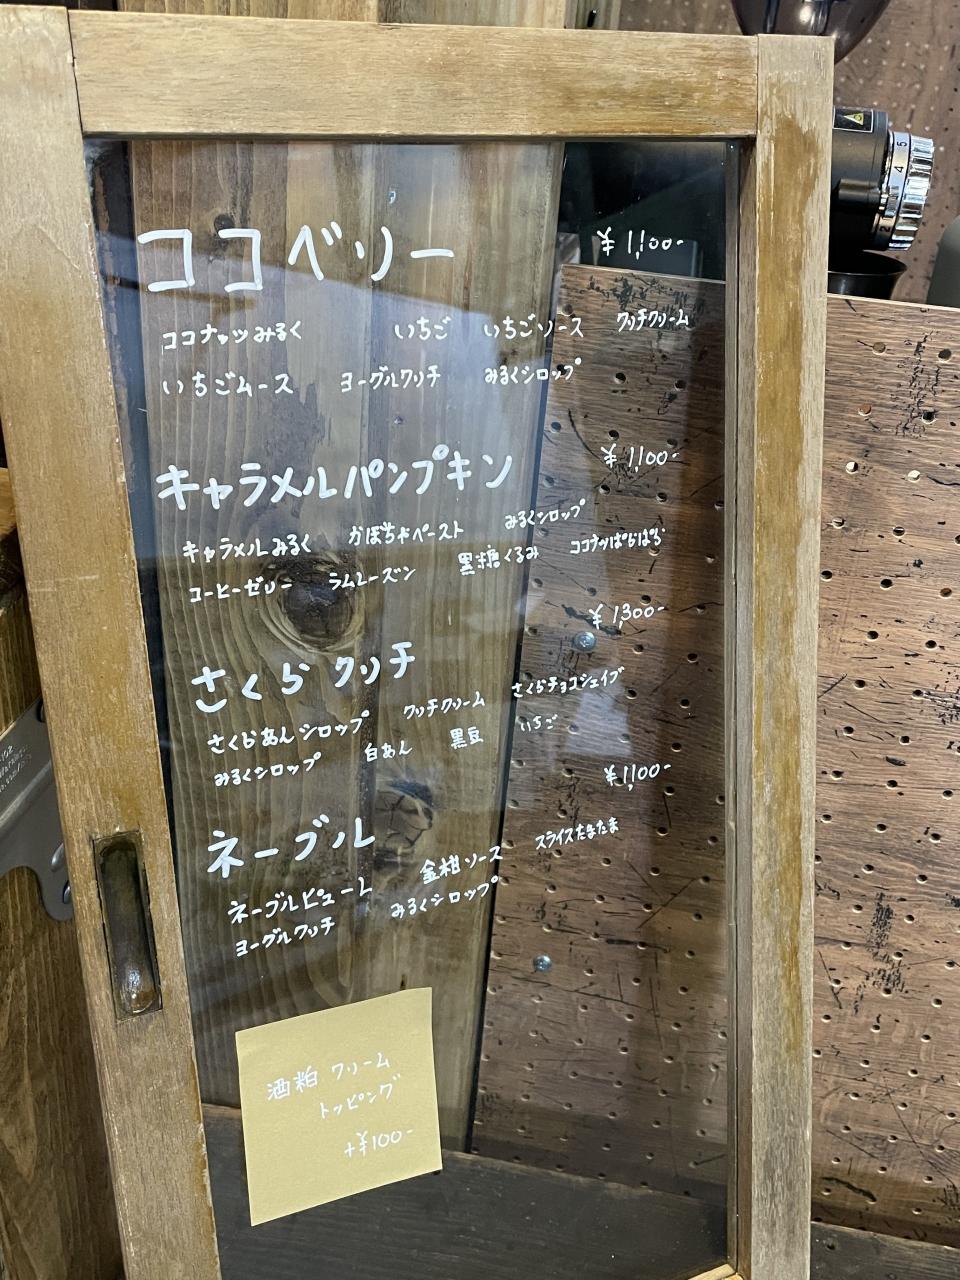 ココベリー ¥1,100-
ココナッツみるく いちご いちごソース クリチクリーム
いちごムース ヨーグルクリチ みるくシロップ
キャラメルパンプキン ¥1,100-
キャラメルみるく かぼちゃペースト みるくシロップ
コーヒーゼリー ラムレーズン 黒糖くるみ ココナッツぱらぱら
さくらクリチ ¥1,300-
さくらあんシロップ クリチクリーム さくらチョコシェイブ
みるくシロップ 白あん 黒豆 いちご
ネーブル ¥1,100-
ネーブルピューレ 金柑ソース スライスたまたま
ヨーグルクリチ みるくシロップ
酒粕クリーム
トッピング
+¥100-
5
4
2